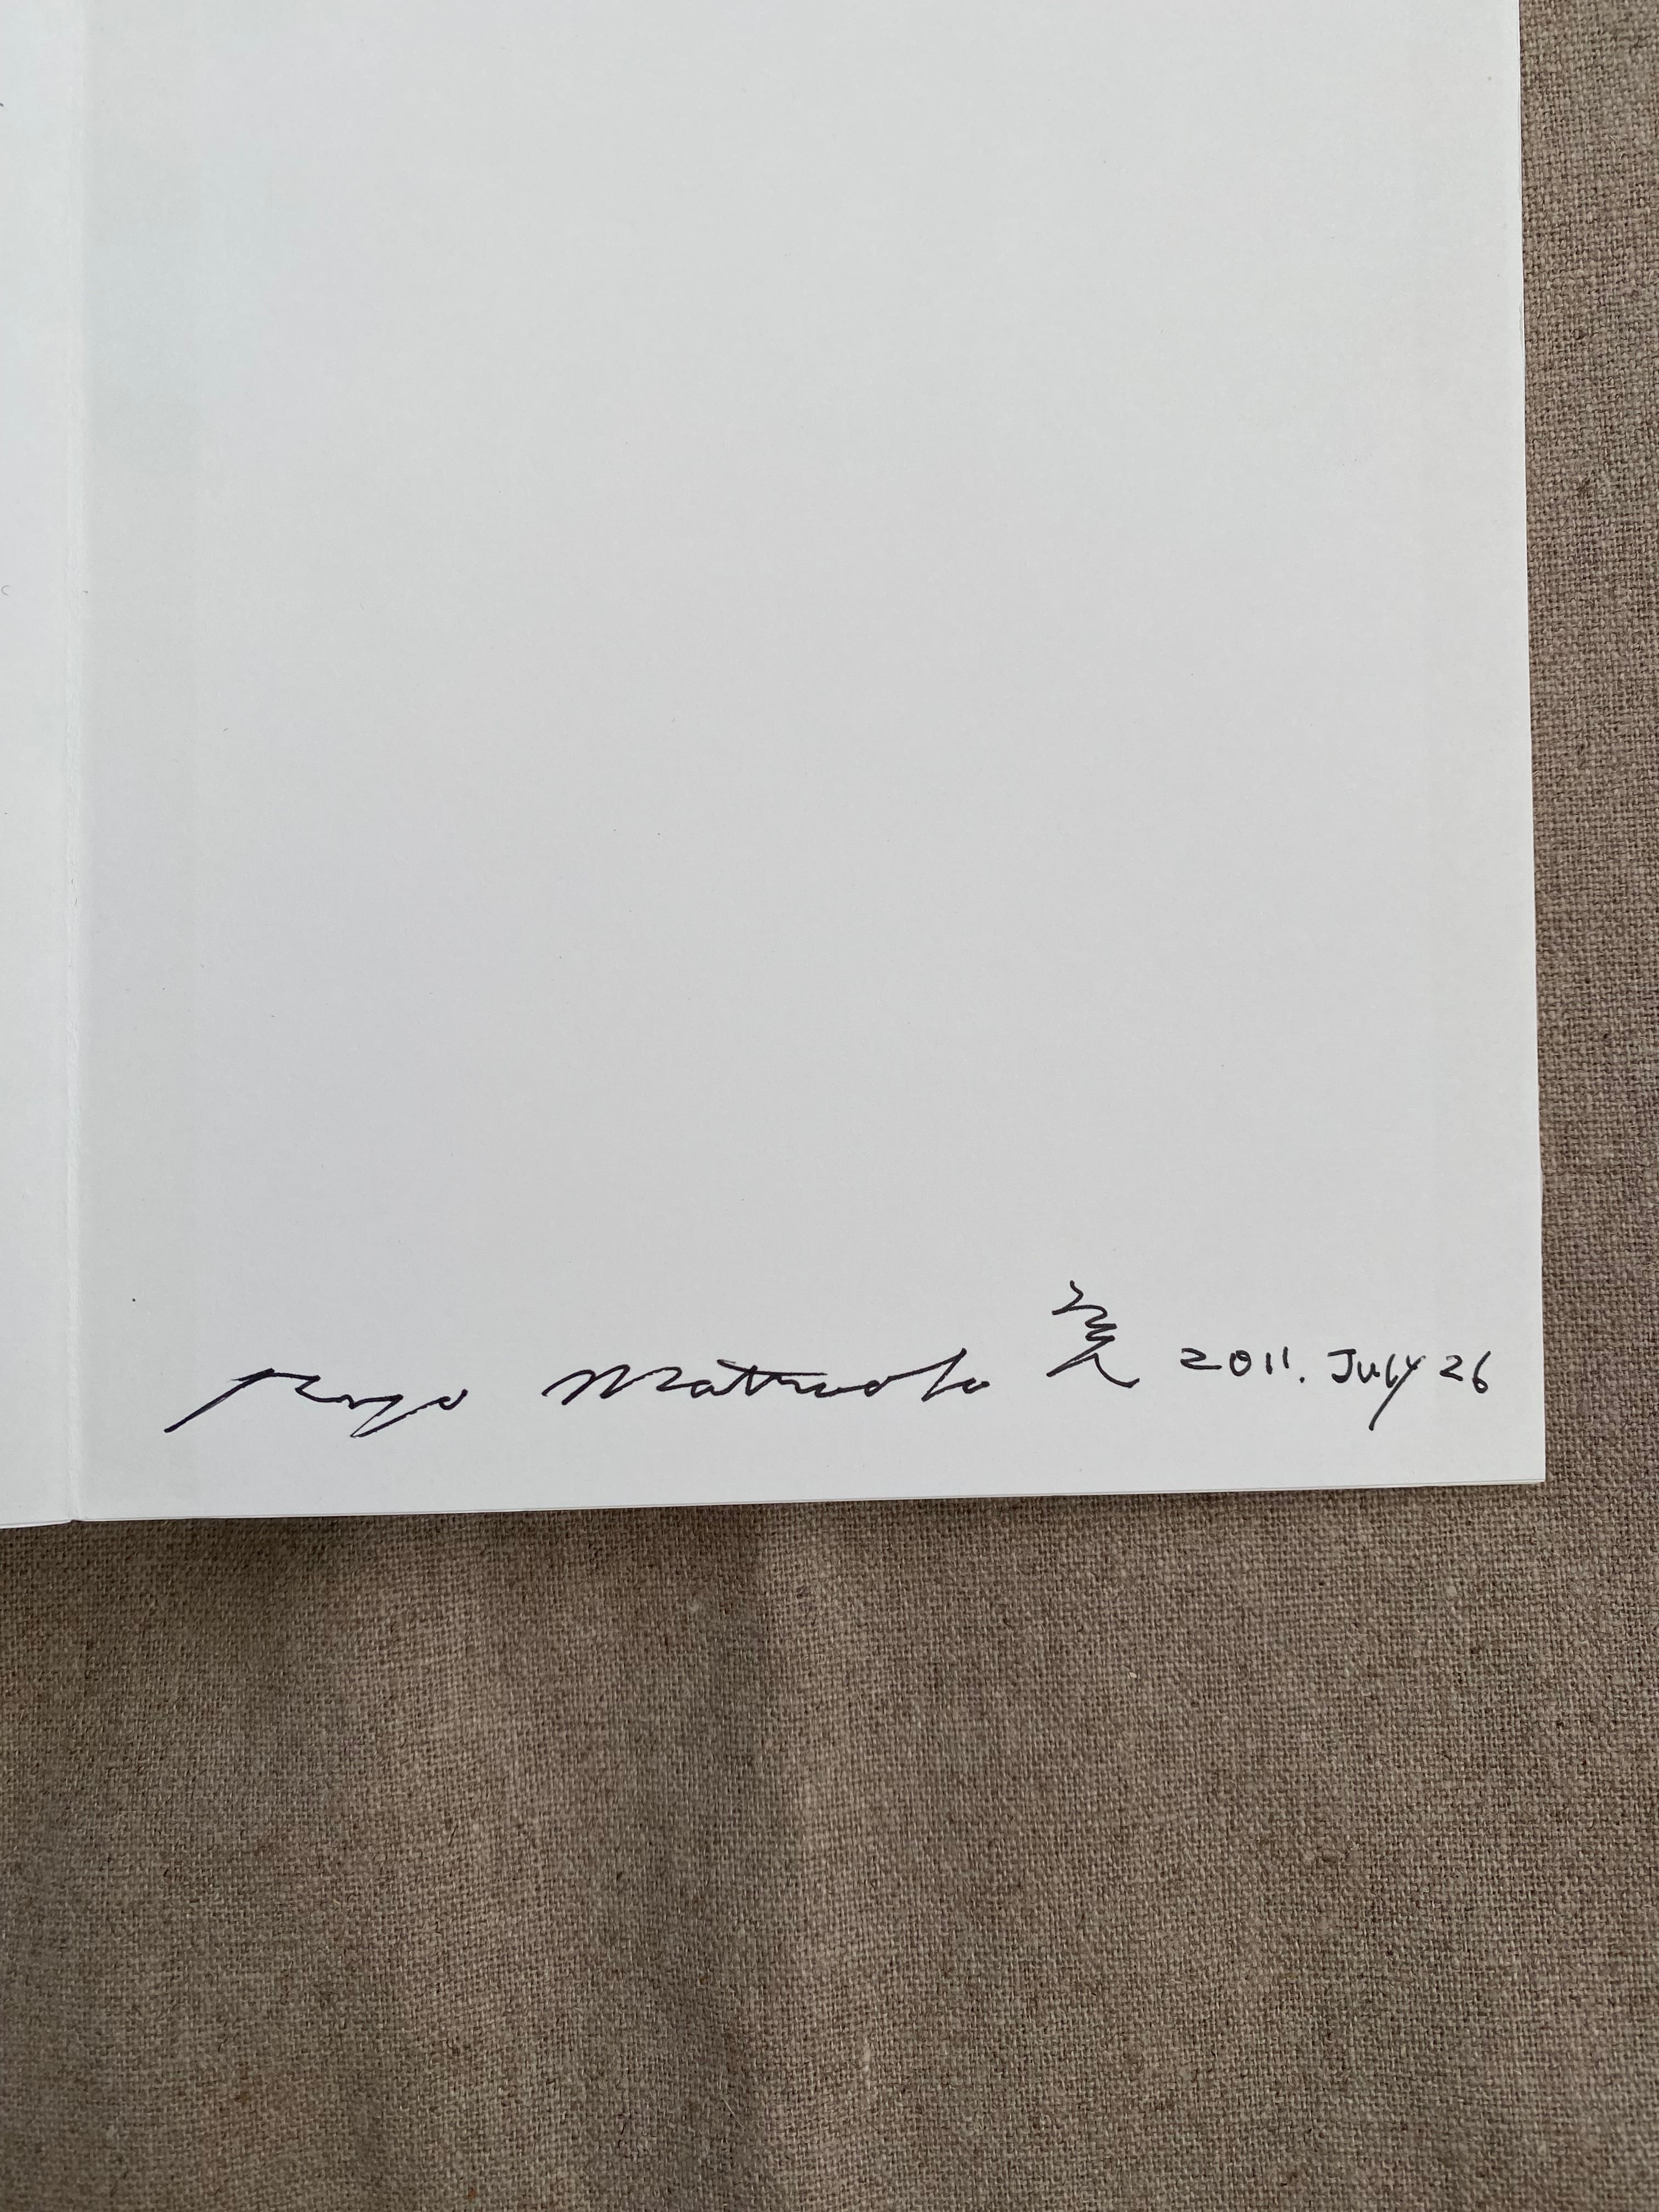 Ryo Matsuoka 亮 2011. July 26